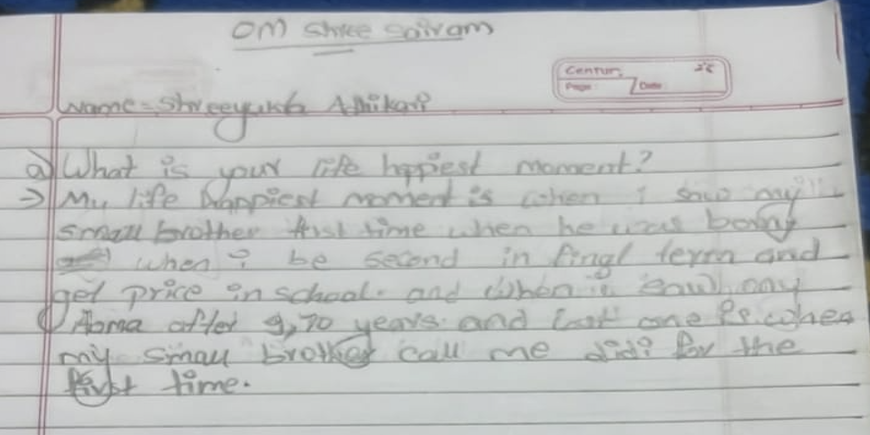 OM Shree Sairam
Century
Page: Date
Name = Shreeyukta Adhikari
a) What is your life hppiest moment?
→ My life happiest moment is when I saw my
small brother first time when he was born
when i be second in fingl term and
get price in school. and when i saw my
Aama after 9,10 years. and last one is when
my small brother call me didi for the
first time.